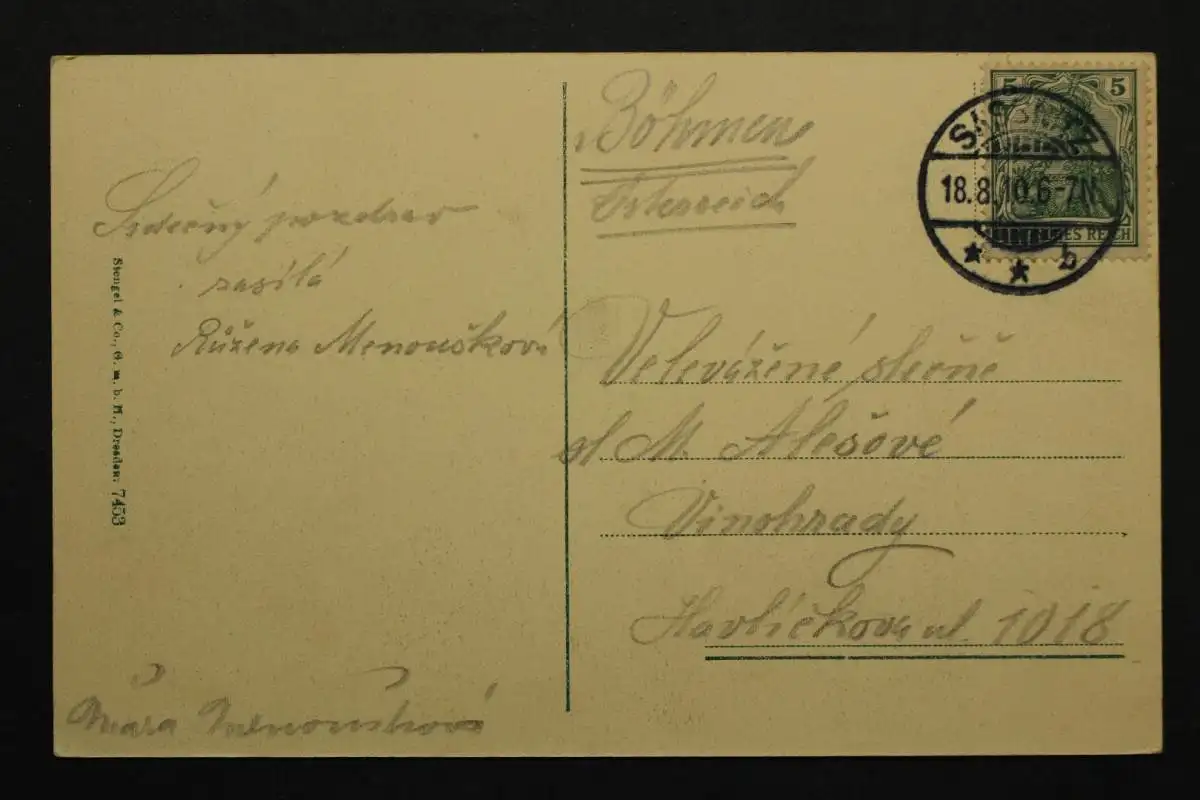 Srdečný pozdrav
zasílá
Růžena Menoušková
Mářa Menoušková
Stengel & Co., G. m. b. H., Dresden. 7453
Böhmen
Österreich
5 5
SASSNITZ
18.8.10.6-7N.
* * b
DEUTSCHES REICH
Velevážené slečně
sl M. Alešové
Vinohrady
Havlíčkova ul. 1018